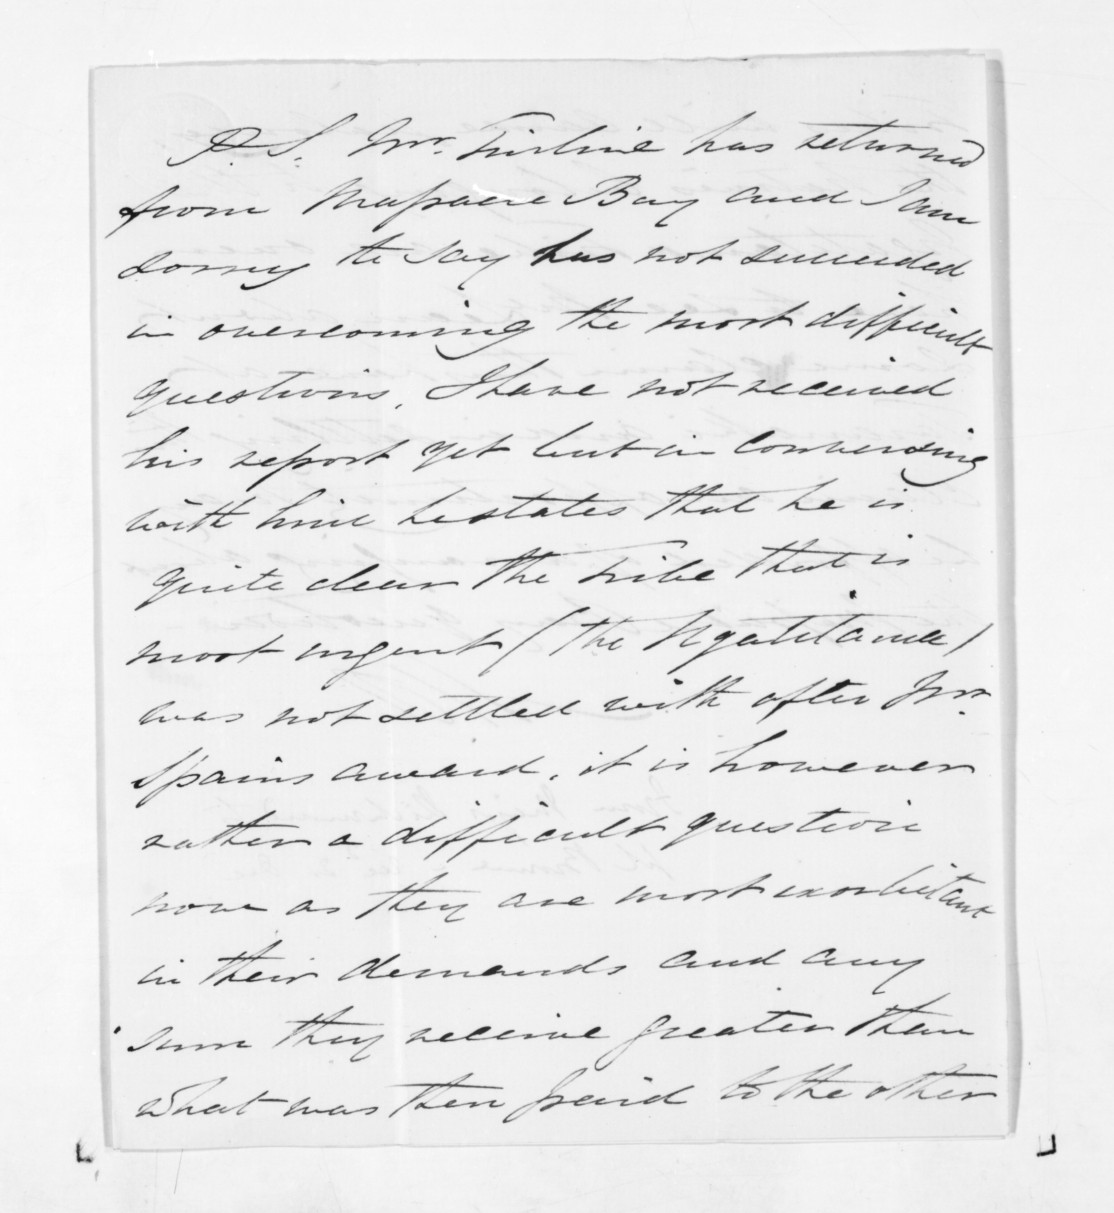 P.S. Mr. Tinline has returned
from Massacre Bay and I am
sorry to say has not succeeded
in overcoming the most difficult
questions, I have not received
his report yet but in conversing
with him he states that he is
quite clear the Tribe that is
most urgent (the Ngatitama)
was not settled with after Mr.
Spains award, it is however
rather a difficult question
now as they are most exorbitant
in their demands and any
sum they receive greater than
what was then paid to the other